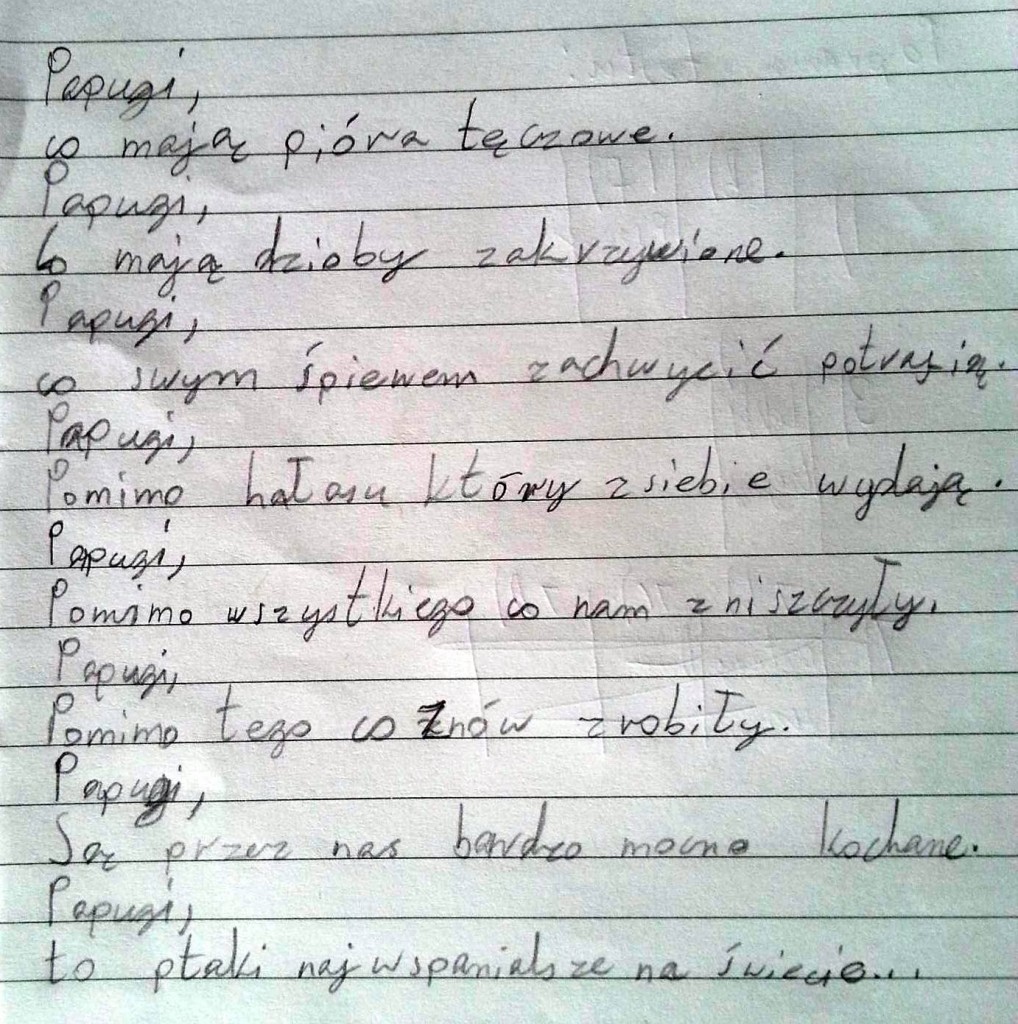 Papugi,
co mają pióra tęczowe.
Papugi,
Co mają dzioby zakrzywione.
Papugi,
co swym śpiewem zachwycić potrafią.
Papugi,
Pomimo hałasu który z siebie wydają.
Papugi,
Pomimo wszystkiego co nam zniszczyły.
Papugi,
Pomimo tego co znów zrobiły.
Papugi,
Są przez nas bardzo mocno kochane.
Papugi,
to ptaki najwspanialsze na świecie...